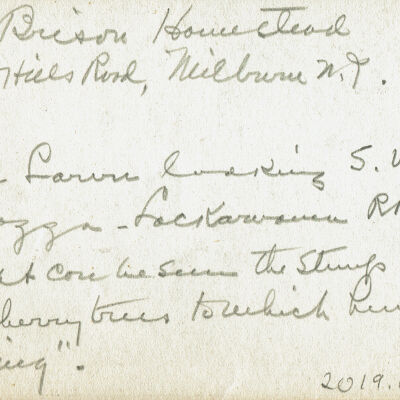 Brison Homestead
Hills Road, Milburn N.J.
Lawn looking S. W
Lackawanna RR
can be seen the Stump
berry trees to which
2019.